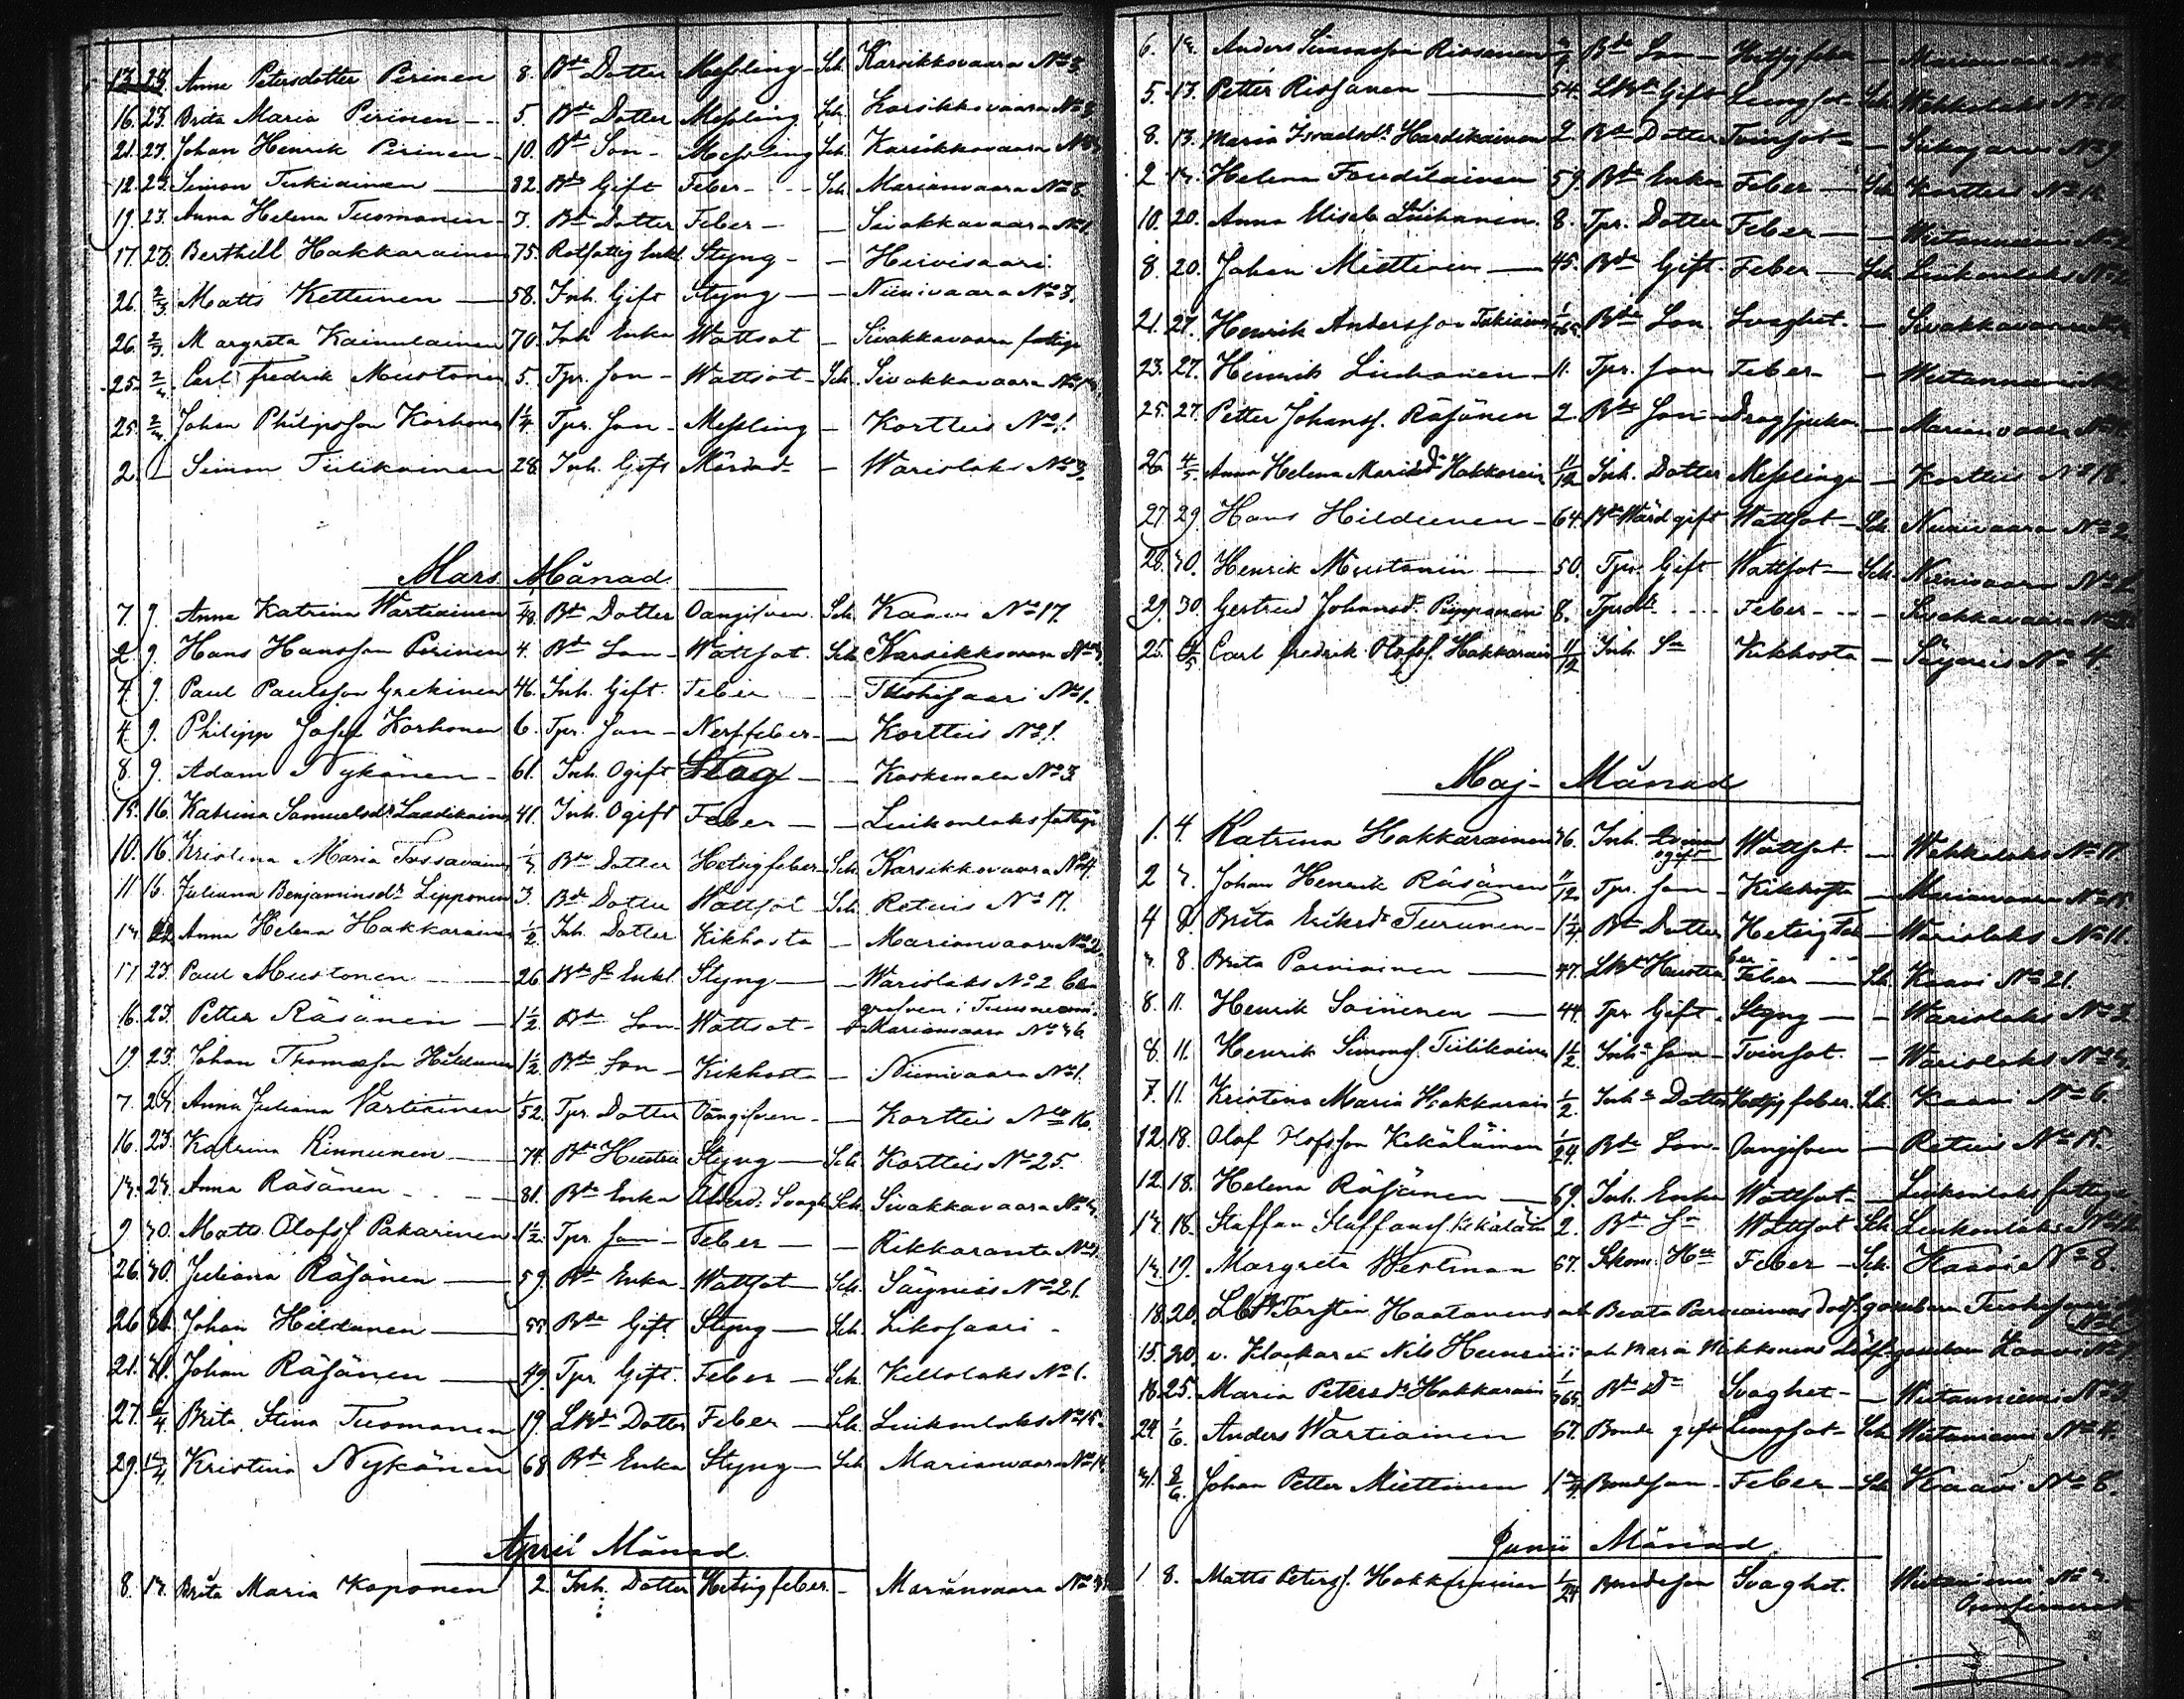 13. 23. Anna Petersdotter Pirinen 8. Bde Dotter Messling - Sch. Karsikkovaara No 3.
16. 23. Brita Maria Pirinen - - 5. Bde Dotter Messling Sch. Karsikkovaara No 3.
21. 27. Johan Henrik Pirinen - 10. Bde Son - Messling Sch. Karsikkovaara No
12. 23. Simon Tukiainen 82. Bde Gift Feber - - - Sch. Marianvaara No 8
19. 23. Anna Helena Tuomanen - 3. Bde Dotter Feber - - Sivakkavaara No 1.
17. 23. Berthill Hakkarainen 75. Rotfattig Enkl. Styng - - Heivisaari.
26. 2/3 Matts Kettunen 58. Inh. Gift Styng - - Niinivaara No 3.
26. 2/3. Margreta Kainulainen 70. Inh Enka Wattsot - Sivakkavaara fattige
25. 2/3. Carl Fredrik Mustonen 5. Tpr. Son - Wattsot - Sch. Sivakkavaara No
25. 2/3. Johan Philipsson Korhonen 1 1/4. Tpr. Son - Messling - Kortteis No 1.
2. Simon Tiilikainen 28 Inh. Gift Mördad - Warislaks No 3.
Mars Månad
7. 9. Anna Katrina Wartiainen 1/48. Bde Dotter Oangifven. Sch. Kaavi No 17.
2. 9. Hans Hansson Pirinen 4. Bde Son - Wattsot. Sch. Karsikkovaara No
4. 9. Paul Paulsson Grekinen 46. Inh. Gift. Feber - Tuohisaari No 1.
4. 9. Philipp Josef Korhonen 6. Tpr. Son - Nerffeber - - Kortteis No 1.
8. 9. Adam Nykänen - 61. Inh. Ogift Slag - - Koskenala No 3
15. 16. Katrina Samuelsdr Laadikainen 41. Inh. Ogift Feber - - Luikonlaks fattige
10. 16. Kristina Maria Tossavainen Bde Dotter Hetsigfeber Sch. Karsikkovaara No 4.
11 16. Juliana Benjaminsdr Lipponen 3. Bde Dotter Wattsot Sch. Retuis No 17.
14. 22. Anna Helena Hakkarainen 1/2. Inh. Dotter Kikhosta - Marianvaara No 2.
17 23. Paul Mustonen 26 Bde Sn Enkl. Styng - - Warislaks No 2. Be
grafven i Tuusniemi.
16. 23. Petter Räsänen 1 1/2. Bde Son - Wattsot - Marianvaara No 36
19. 23. Johan Thomasson Hildunen 1 1/2. Bde Son - Kikhosta - Niinivaara No 1.
7. 24. Anna Juliana Wartiainen 1/52. Tpr. Dotter Oangifven - - Kortteis No 16.
16. 23. Katrina Kinnunen 74. Bde Hustru Styng - Sch. Kortteis No 25.
14. 24. Anna Räsänen 81. Bde Enka Ålderd. Svagh. Sch. Sivakkavaara No
9 30. Matts Olofsf. Pakarinen 1 1/2. Tpr. Son - Feber - - Rikkaranta No
26. 30. Juliana Räsänen 59. Bde Enka - Wattsot - Sch. Säyneis No 21.
26 30. Johan Hildunen 55. Bde Gift Styng - Sch. Likosaari -
21. 30. Johan Räsänen 49. Tpr. Gift. Feber - Sch. Kellolaks No 1.
27. 6/4 Brita Stina Tuomanen 19. LBde Dotter Feber - Sch. Luikonlaks No 15.
29. 13/4 Kristina Nykänen 68 Bde Enka Styng - Sch. Marianvaara No 14.
April Månad
8. 13. Brita Maria Koponen 2. Inh. Dotter Hetsigfeber. - Marianvaara No
6. 13. Anders Simonsson Rissanen Bde Son - Hetsigfeber - Marianvaara No
5. 13. Petter Rissanen 54. LBde Gift Lungsot. Sch. Wehkolaks No 10.
8. 13. Maria Israelsdr Hardikainen 2. Bde Dotter Tvinsot - - No 9
2 13. Helena Foudilainen 59. Bde Enka Feber - Sch. Kortteis No 16.
10. 20. Anna Elisab. Liuhanen. 8. Tpr. Dotter Feber - - Wiitaniemi No 2
8. 20. Johan Miettinen 45. Bde Gift. Feber - Sch. Luikonlaks No 12
21. 27. Henrik Andersson Tukiainen 1/365. Bde Son. Svaghet. - Sivakkavaara
23. 27. Henrik Liuhanen 11. Tpr. Son Feber - - Wiitaniemi No 2
25. 27. Petter Johansf. Räsänen 2. Bde Son - Dragsjuka. - Marianvaara No
26 4/5. Anna Helena Mariedr Hakkarain 11/12 Inh. Dotter Messling - Kortteis No 18.
27. 29. Hans Hildunen - 64. Bde Wärd gift Wattsot - Sch. Niinivaara No 2.
28. 30. Henrik Mustonen 50. Tpr. Gift Wattsot - Sch. Niinivaara No
29. 30. Gertrud Johansdr Pipponen 8. Tprdtr - - - Feber - - - Sivakkavaara No
25. 4/5 Carl Fredrik Olofsf. Hakkarain 11/12 Inh. Sn Kikhosta - Säyneis No 4.
Maj - Månad
1. 4. Katrina Hakkarainen 36. Inh. qvinna
ogift Wattsot. - Wehkalaks No 17.
2 Johan Henrik Räsänen 11/12. Tpr. Son - Kikhosta - Marianvaara No 15
4 8. Brita Eriksdr Turunen - 1 1/4. Bde Dotter Hetsig Fe - Warislaks No 11.
ber
3. 8. Brita Parviainen 47. LBde Hustru Feber - Sch. Kaavi No 21.
8. 11. Henrik Soininen 44. Tpr. Gift. Styng - - Warislaks No 2
8. 11. Henrik Simonsf. Tiilikainen 1 1/2. Inh. Son - Tvinsot. - Warislaks No
7. 11. Kristina Maria Hakkarain 1/2. Inh. Dotter Hetsigfeber. Sch. Kaavi No 6.
12. 18. Olof Olofsson Kekäläinen 1/24. Bde Son. Oangifven - Retuis No 15.
12. 18. Helena Räsänen 69. Inh. Enka Wattsot - - Luikonlaks fattige
14. 18. Staffan Staffansf. Kekäläin 2. Bde Sn Wattsot Sch. Luikonlaks No 12
14. 19. Margreta Westman 67. Skom. Hu Feber - Sch. Kaavi No 8.
18. 20. LBde Torsten Haatanens och Beata Parviainens dödf. gossebarn Tuohisaari
No
15. 20. v. Klockaren Nils Henrici och Maria Mikkonens dödf. gossebarn Kaavi No
18. 25. Maria Petersdr Hakkarain 1/365. Bde Dr Svaghet - - Wiitaniemi No 2.
24. 1/6. Anders Wartiainen 67. Bonde gift Lungsot - Sch. Wiitaniemi No 4.
31. 8/6. Johan Petter Miettinen 1 3/4. Bondson - Feber - Sch Kaavi No 8.
Junii Månad.
1 8. Matts Petersf. Hakkarainen 1/24 Bondeson Svaghet. Wiitaniemi No